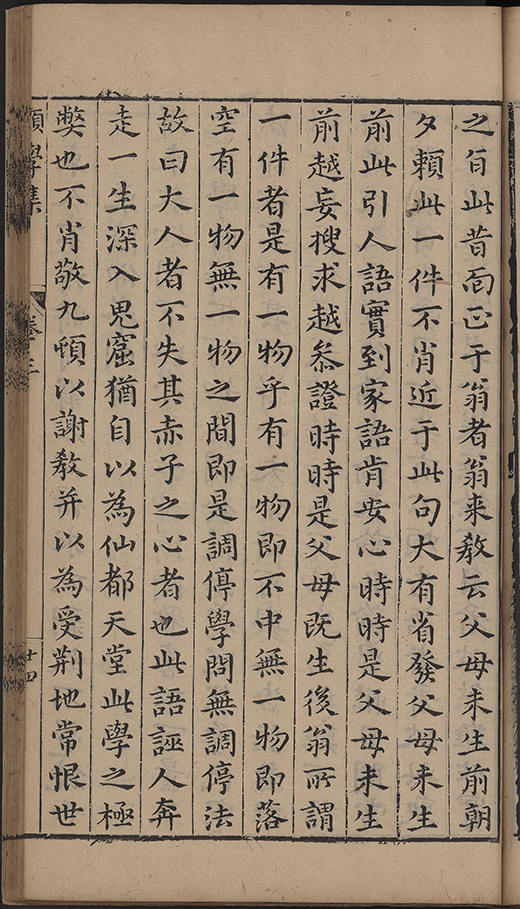 之旨此昔面正于翁者翁来教云父母未生前朝
夕賴此一件不肖近于此句大有省發父母未生
前此引人語實到家語肯安心時時是父母未生
前越妄搜求越叅證時時是父母既生後翁所謂
一件者是有一物乎有一物即不中無一物即落
空有一物無一物之間即是調停學問無調停法
故曰大人者不失其赤子之心者也此語誣人奔
走一生深入鬼窟猶自以為仙都天堂此學之極
弊也不肖敬九頓以謝教并以為受荆地常恨世
願學集 卷三 廿四